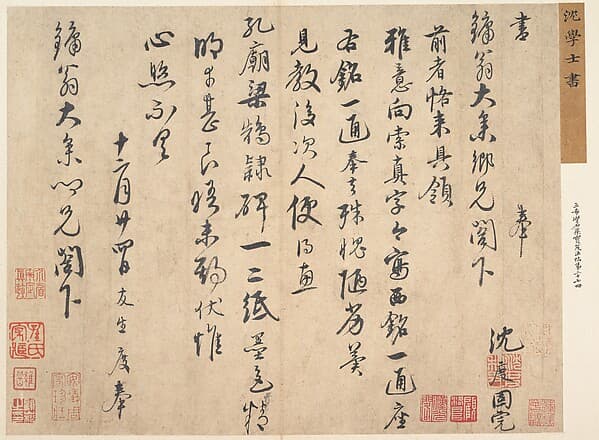 沈學士書
書 奉
鏞翁大參鄉兄閣下 沈度固完
前者恪來具領
雅意向索真字今寫西銘一通座
右銘一通奉去殊愧陋劣冀
見教後次人便得惠
孔廟梁鵠隸碑一二紙墨色精
明甚良晤未期伏惟
心照不具
十二月廿四日友生度奉
鏞翁大參鄉兄閣下